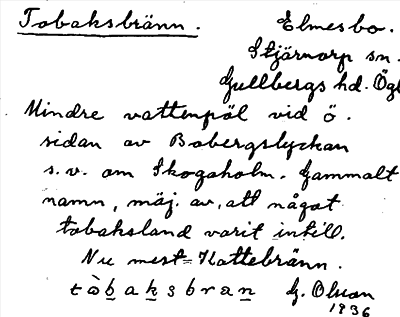 Tobaksbränn. Elmesbo.
Stjärnorp sn.
Gullbergs hd. Ögl
Mindre vattenpöl vid ö.
sidan av Bobergslyckan
s.v. om Skogaholm. Gammalt
namn, mäj. av, att något
tobaksland varit intill.
Nu mest = Kattebränn.
tòbaksbran G. Olson
1936